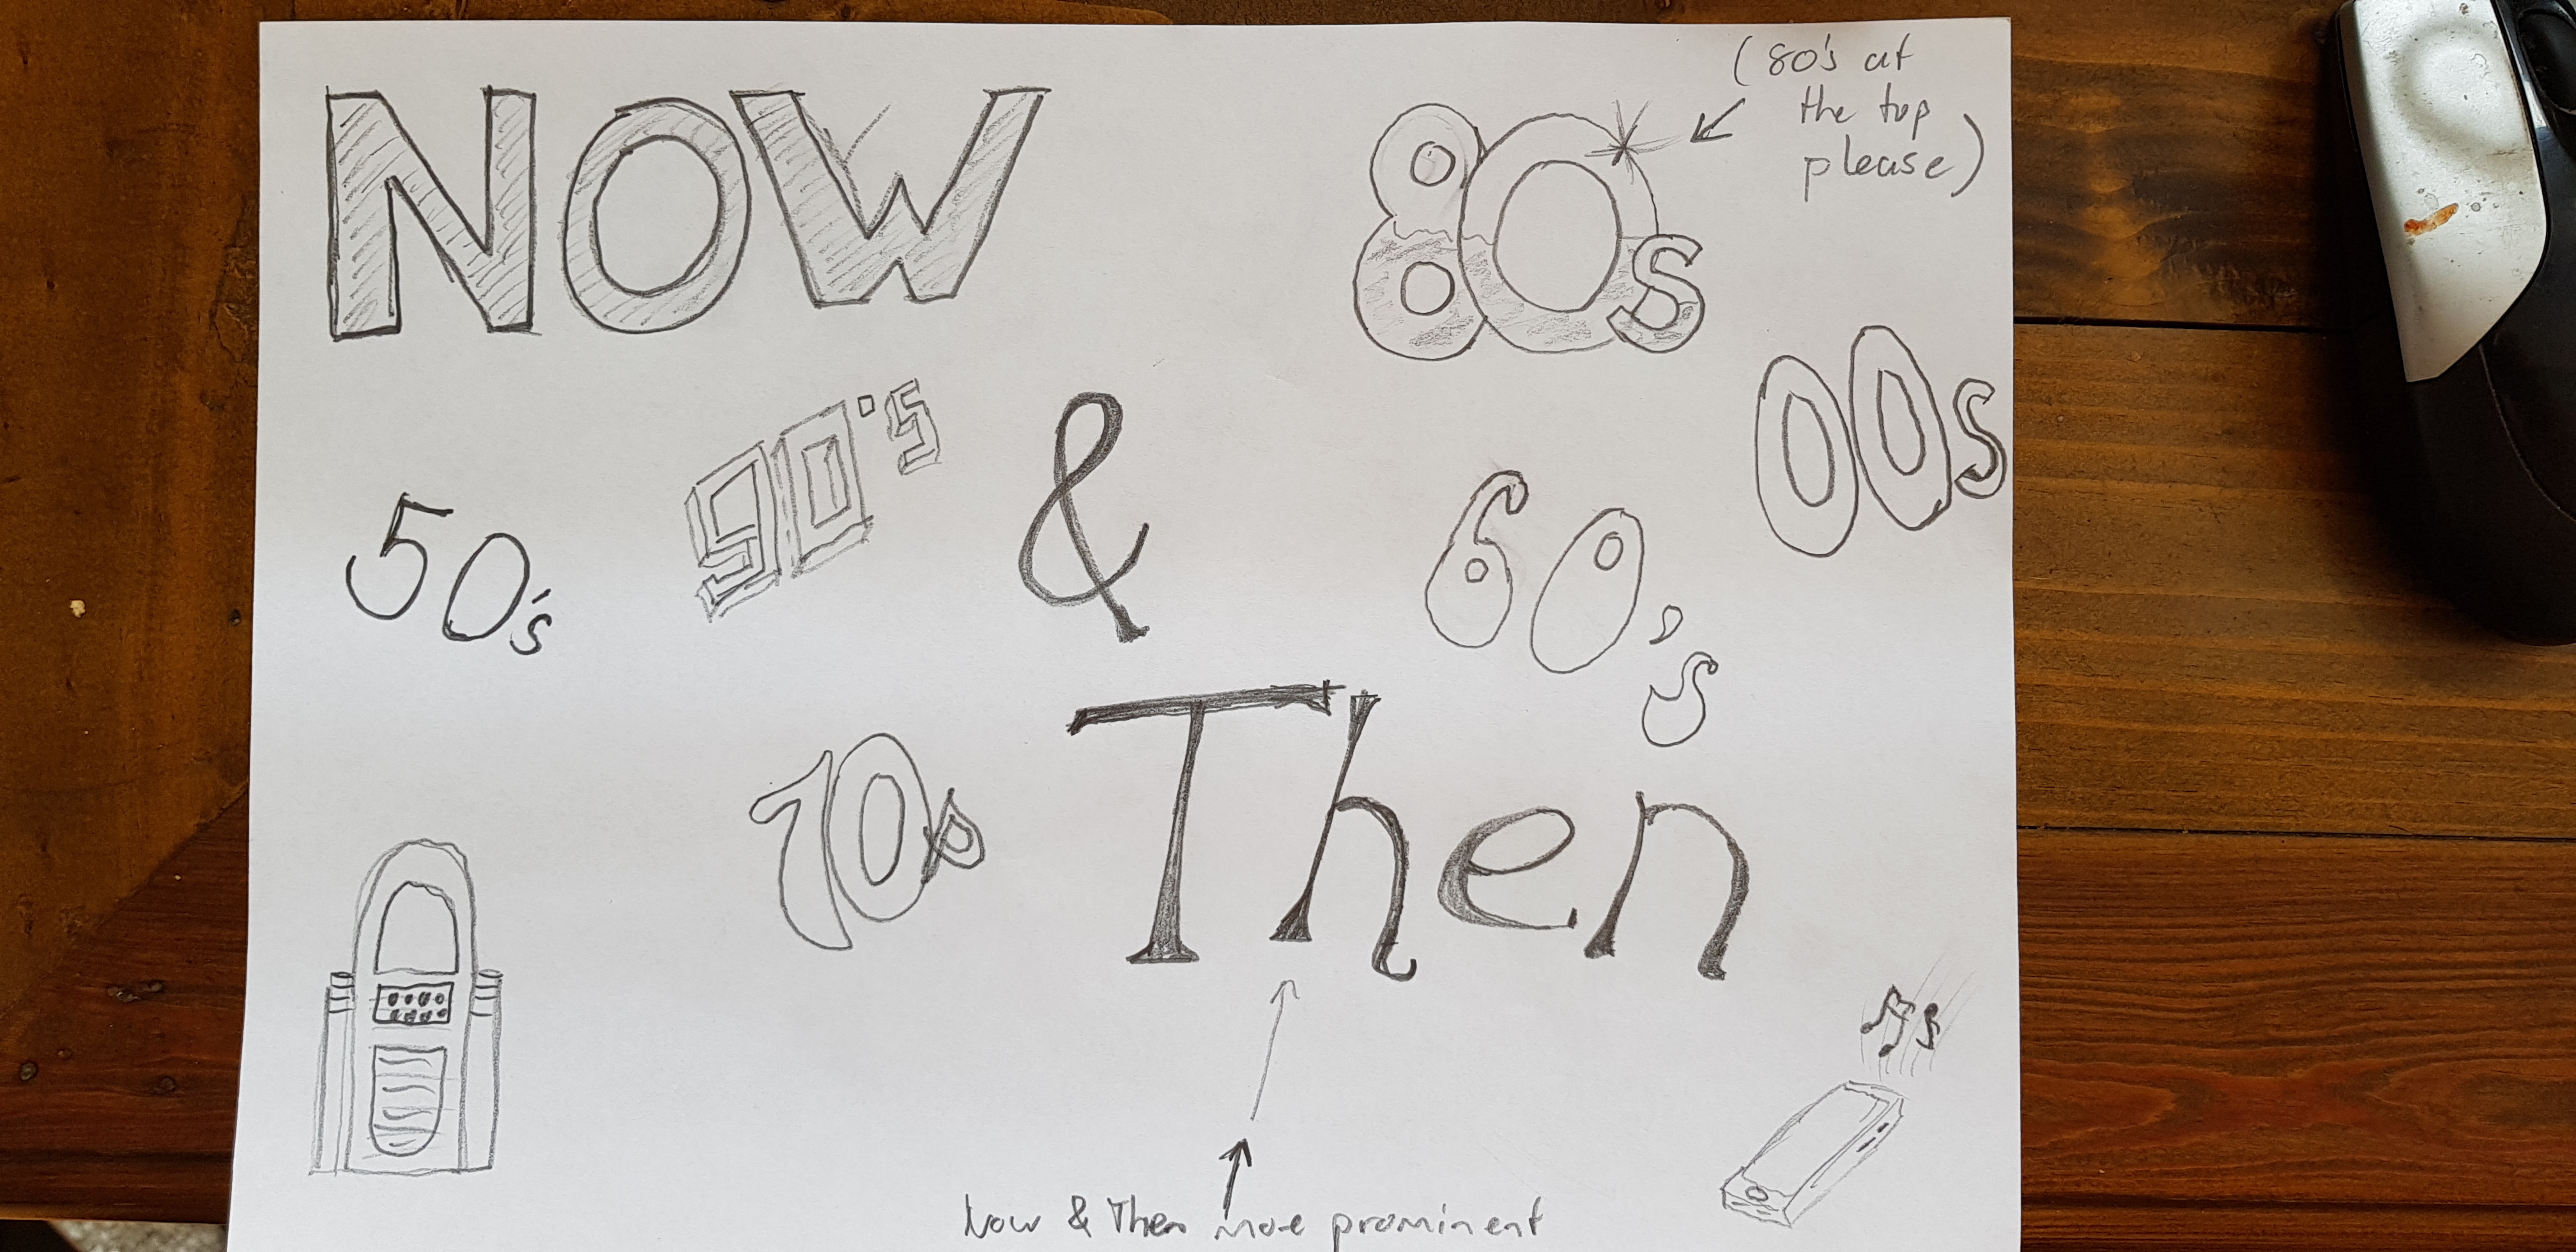 NOW
80s
(80's at
the top
please)
00s
90's
&
50's
60's
70s
Then
Now & Then more prominent